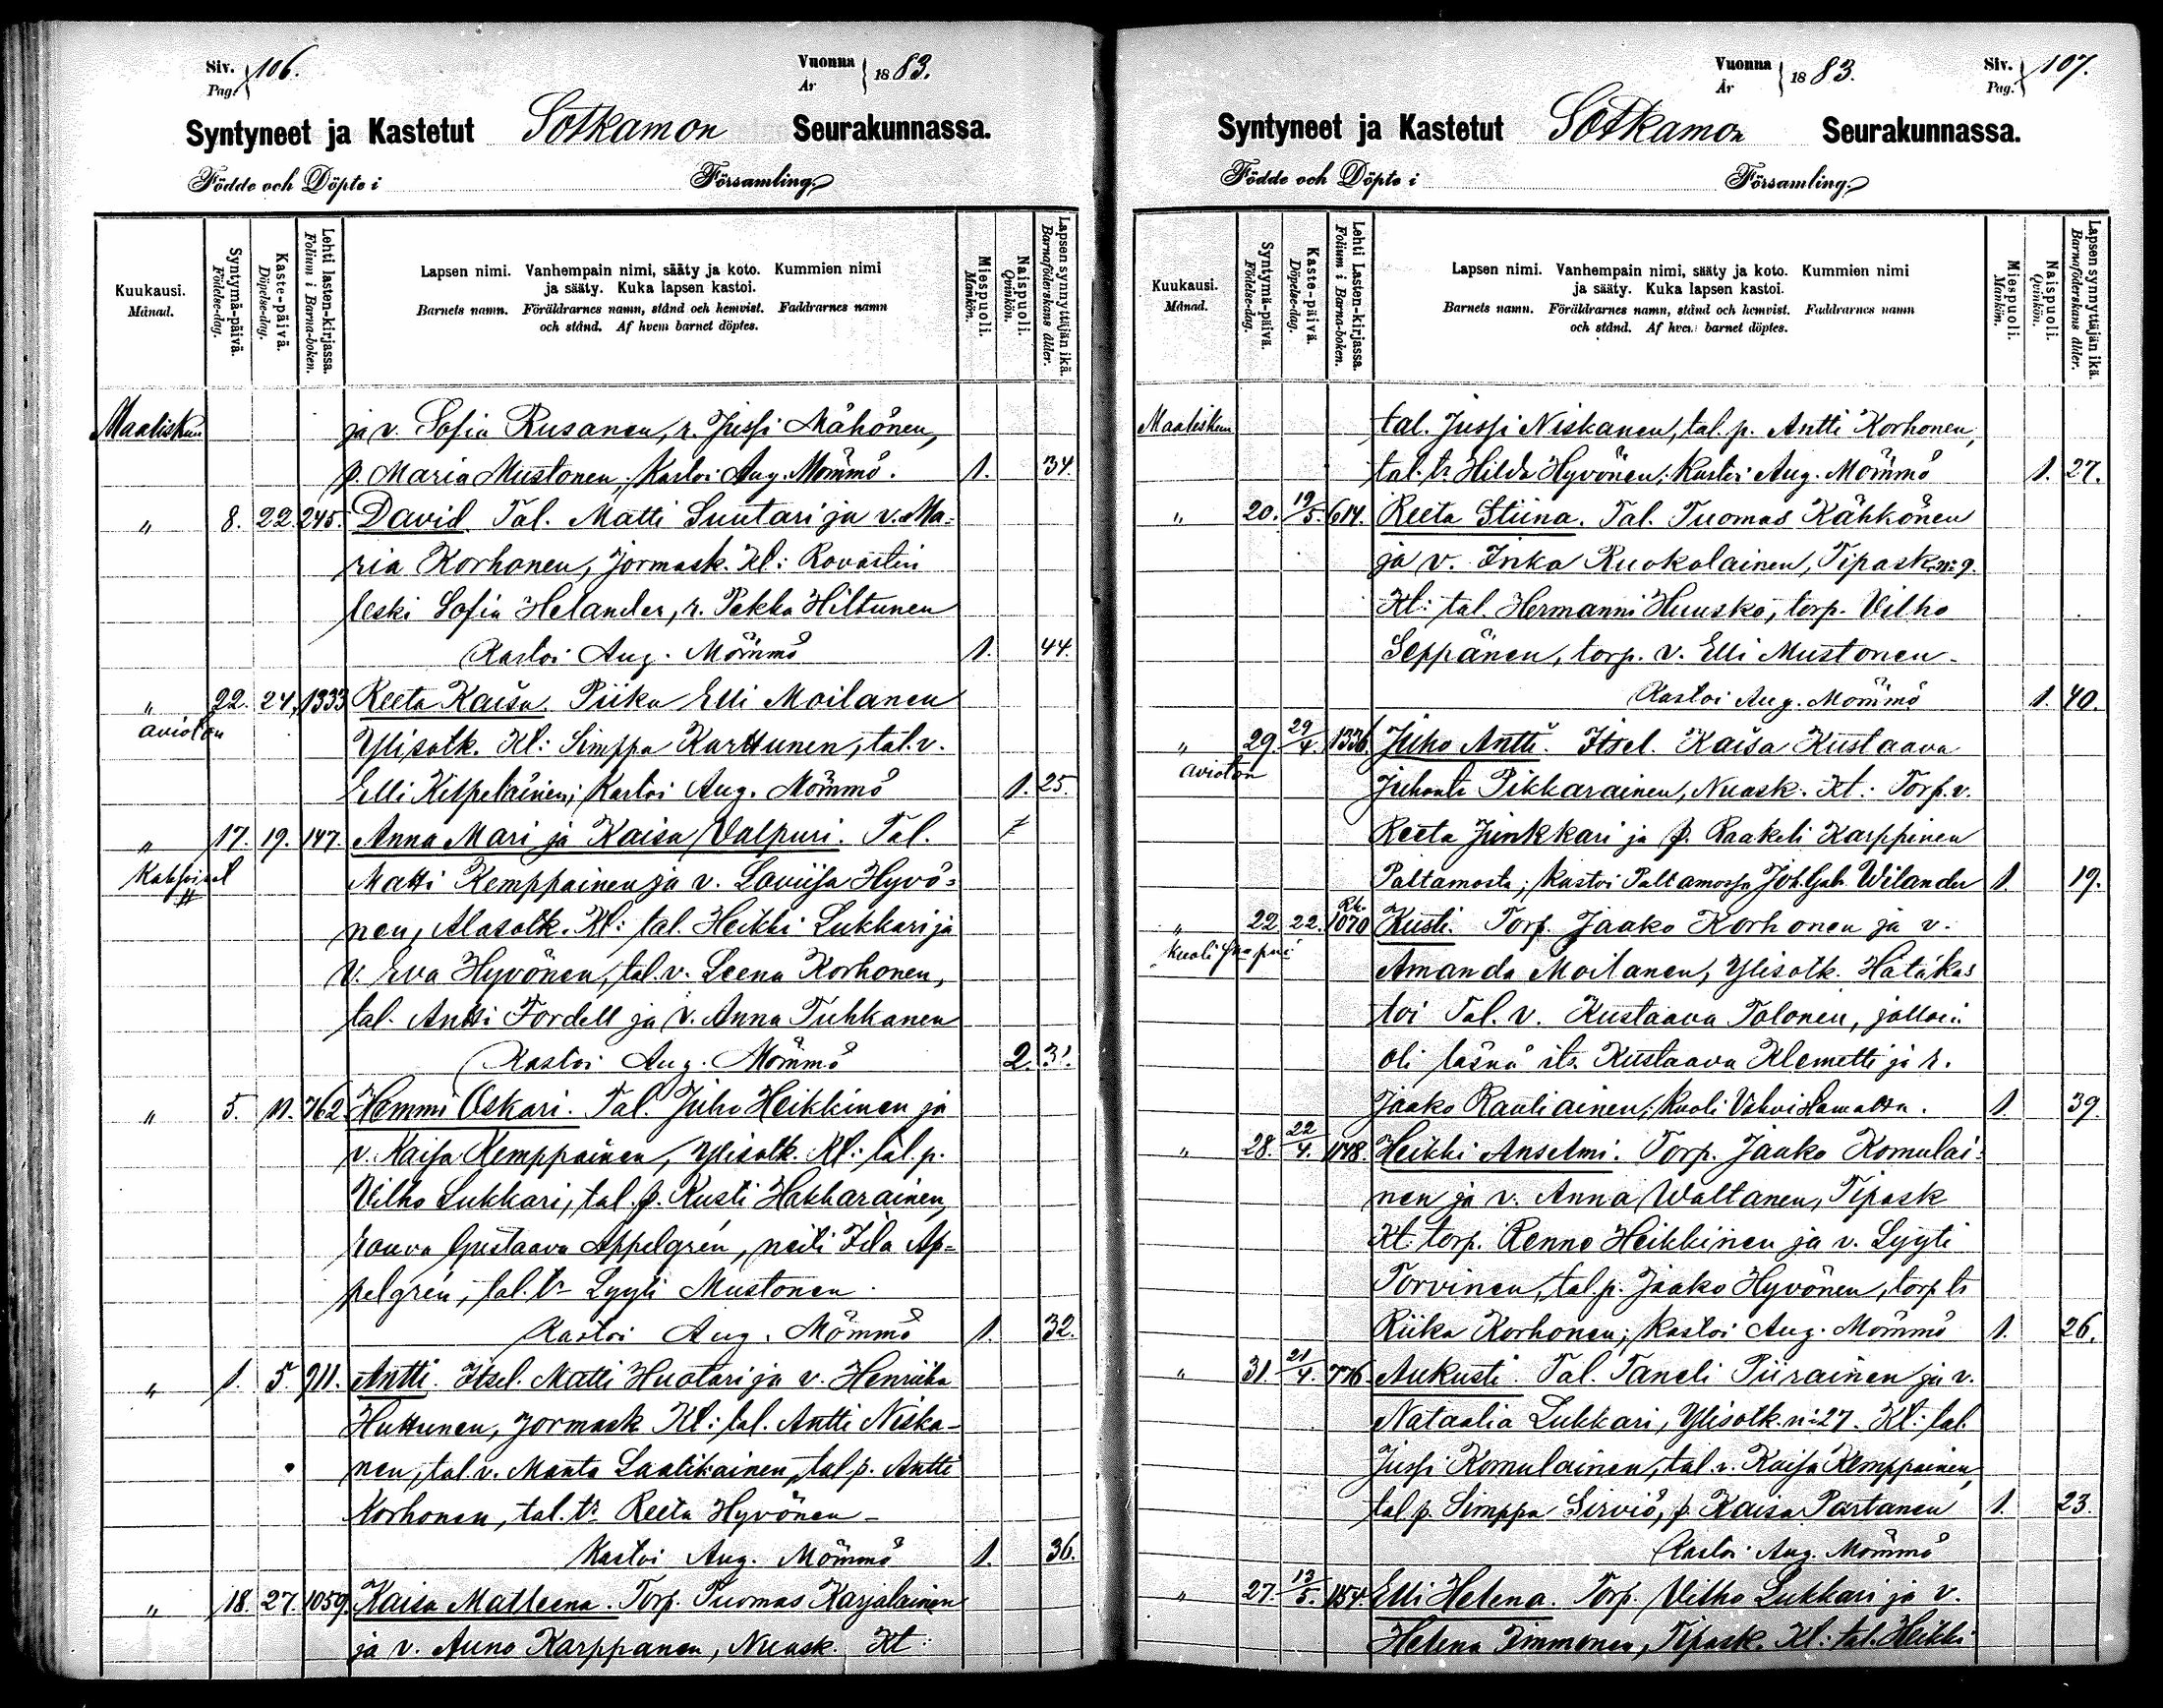 Siv. 106.
Pag.
Vuonna 1883.
År
Syntyneet ja Kastetut Sotkamon Seurakunnassa.
Födde och Döpte i Församling.
Kuukausi.
Månad.
Syntymä-päivä.
Födelse-dag.
Kaste-päivä.
Döpelse-dag.
Lehti lasten-kirjassa.
Folium i Barna-boken.
Lapsen nimi. Vanhempain nimi, sääty ja koto. Kummien nimi
ja sääty. Kuka lapsen kastoi.
Barnets namn. Föräldrarnes namn, stånd och hemvist. Faddrarnes namn
och stånd. Af hvem barnet döptes.
Miespuoli.
Mankön.
Naispuoli.
Qvinkön.
Lapsen synnyttäjän ikä.
Barnaföderskans ålder.
Maaliskuu ja v. Sofia Rusanen, r. Jussi Mähönen,
p. Maria Mustonen; Kastoi Aug. Mömmö. 1. 34.
" 8. 22. 245. David Tal. Matti Suutari ja v. Ma-
ria Korhonen, Jormask. Kl: Rovastin
leski Sofia Helander, r. Pekka Hiltunen
Kastoi Aug. Mömmö 1. 44.
" 22. 24. 1333 Reeta Kaisa. Piika Elli Moilanen
avioton Ylisotk. Kl: Simppa Karttunen, tal. v.
Elli Kilpeläinen; Kastoi Aug. Mömmö 1. 25.
" 17. 19. 147. Anna Mari ja Kaisa Valpuri. Tal.
Kaksoiset Matti Kemppainen ja v. Loviisa Hyvö-
nen, Alasotk. Kl: tal. Heikki Lukkari ja
v. Eva Hyvönen, tal. v. Leena Korhonen,
tal. Antti Fordell ja v. Anna Tuhkanen
Kastoi Aug. Mömmö 2. 31.
" 5. 11. 762. Hemmi Oskari. Tal. Juho Heikkinen ja
v. Kaisa Kemppainen, Ylisotk. Kl: tal. p.
Vilho Lukkari, tal. p. Kusti Hakkarainen,
rouva Gustaava Appelgrén, neiti Ap-
pelgrén, tal. tr Lyyli Mustonen.
Kastoi Aug. Mömmö 1. 32.
" 1. 5. 911. Antti. Itsel. Matti Huotari ja v. Henriika
Huttunen, Jormask Kl: tal. Antti Niska-
nen, tal. v. Manta Laatikainen, tal. p. Antti
Korhonen, tal. tr Reeta Hyvönen
Kastoi Aug. Mömmö 1. 36.
" 18. 27. 1059. Kaisa Matleena. Torp. Tuomas Karjalainen
ja v. Auno Karppanen, Nuask. Kl:
Vuonna 1883.
År
Siv. 107.
Pag.
Syntyneet ja Kastetut Sotkamon Seurakunnassa.
Födde och Döpte i Församling.
Kuukausi.
Månad.
Syntymä-päivä.
Födelse-dag.
Kaste-päivä.
Döpelse-dag.
Lehti Lasten-kirjassa.
Folium i Barna-boken.
Lapsen nimi. Vanhempain nimi, sääty ja koto. Kummien nimi
ja sääty. Kuka lapsen kastoi.
Barnets namn. Föräldrarnes namn, stånd och hemvist. Faddrarnes namn
och stånd. Af hvem barnet döptes.
Miespuoli.
Mankön.
Naispuoli.
Qvinkön.
Lapsen synnyttäjän ikä.
Barnaföderskans ålder.
Maaliskuu tal. Jussi Niskanen, tal. p. Antti Korhonen,
tal. tr Hilda Hyvönen; Kastoi Aug. Mömmö 1. 27.
" 20. 19/5. 614. Reeta Stiina. Tal. Tuomas Kähkönen
ja v. Inka Ruokolainen, Tipask. n:o 9.
Kl: tal. Hermanni Huusko, torp. Vilho
Seppänen, torp. v. Elli Mustonen.
Kastoi Aug. Mömmö 1. 40.
" 29. 29/4. 1336. Juho Antti. Itsel. Kaisa Kustaava
avioton Juhontr Pikkarainen, Nuask. Kl: Torp. v.
Reeta Junkkari ja p. Raakeli Karppinen
Paltamosta; Kastoi Paltamossa Joh. Gab. Wilander 1. 19.
" 22 22. Rk. 1070 Kusti. Torp. Jaako Korhonen ja v.
Amanda Moilanen, Ylisotk. Hätäkas
toi Tal. v. Kustaava Tolonen, jolloin
oli läsnä its. Kustaava Klemetti ja r.
Jaako Rauliainen; kuoli Vahvistamatta. 1. 39.
" 28. 22/4. 1148. Heikki Anselmi. Torp. Jaako Komulai-
nen ja v. Anna Waltanen, Tipask
Kl: torp. Renne Heikkinen ja v. Lyyti
Torvinen, tal. p. Jaako Hyvönen, torp tr
Riika Korhonen; Kastoi Aug. Mömmö 1. 26.
" 31. 21/4. 776. Aukusti. Tal. Taneli Piirainen ja v.
Nataalia Lukkari, Ylisotk. n:o 27. Kl: tal.
Jussi Komulainen, tal. v. Kaisa Kemppainen,
tal p. Simppa Sirviö, p. Kaisa Partanen 1. 23.
Kastoi Aug. Mömmö
" 27. 13/5. 1154 Elli Helena. Torp. Vilho Lukkari ja v.
Helena Timmonen, Tipask. Kl: tal. Heikki